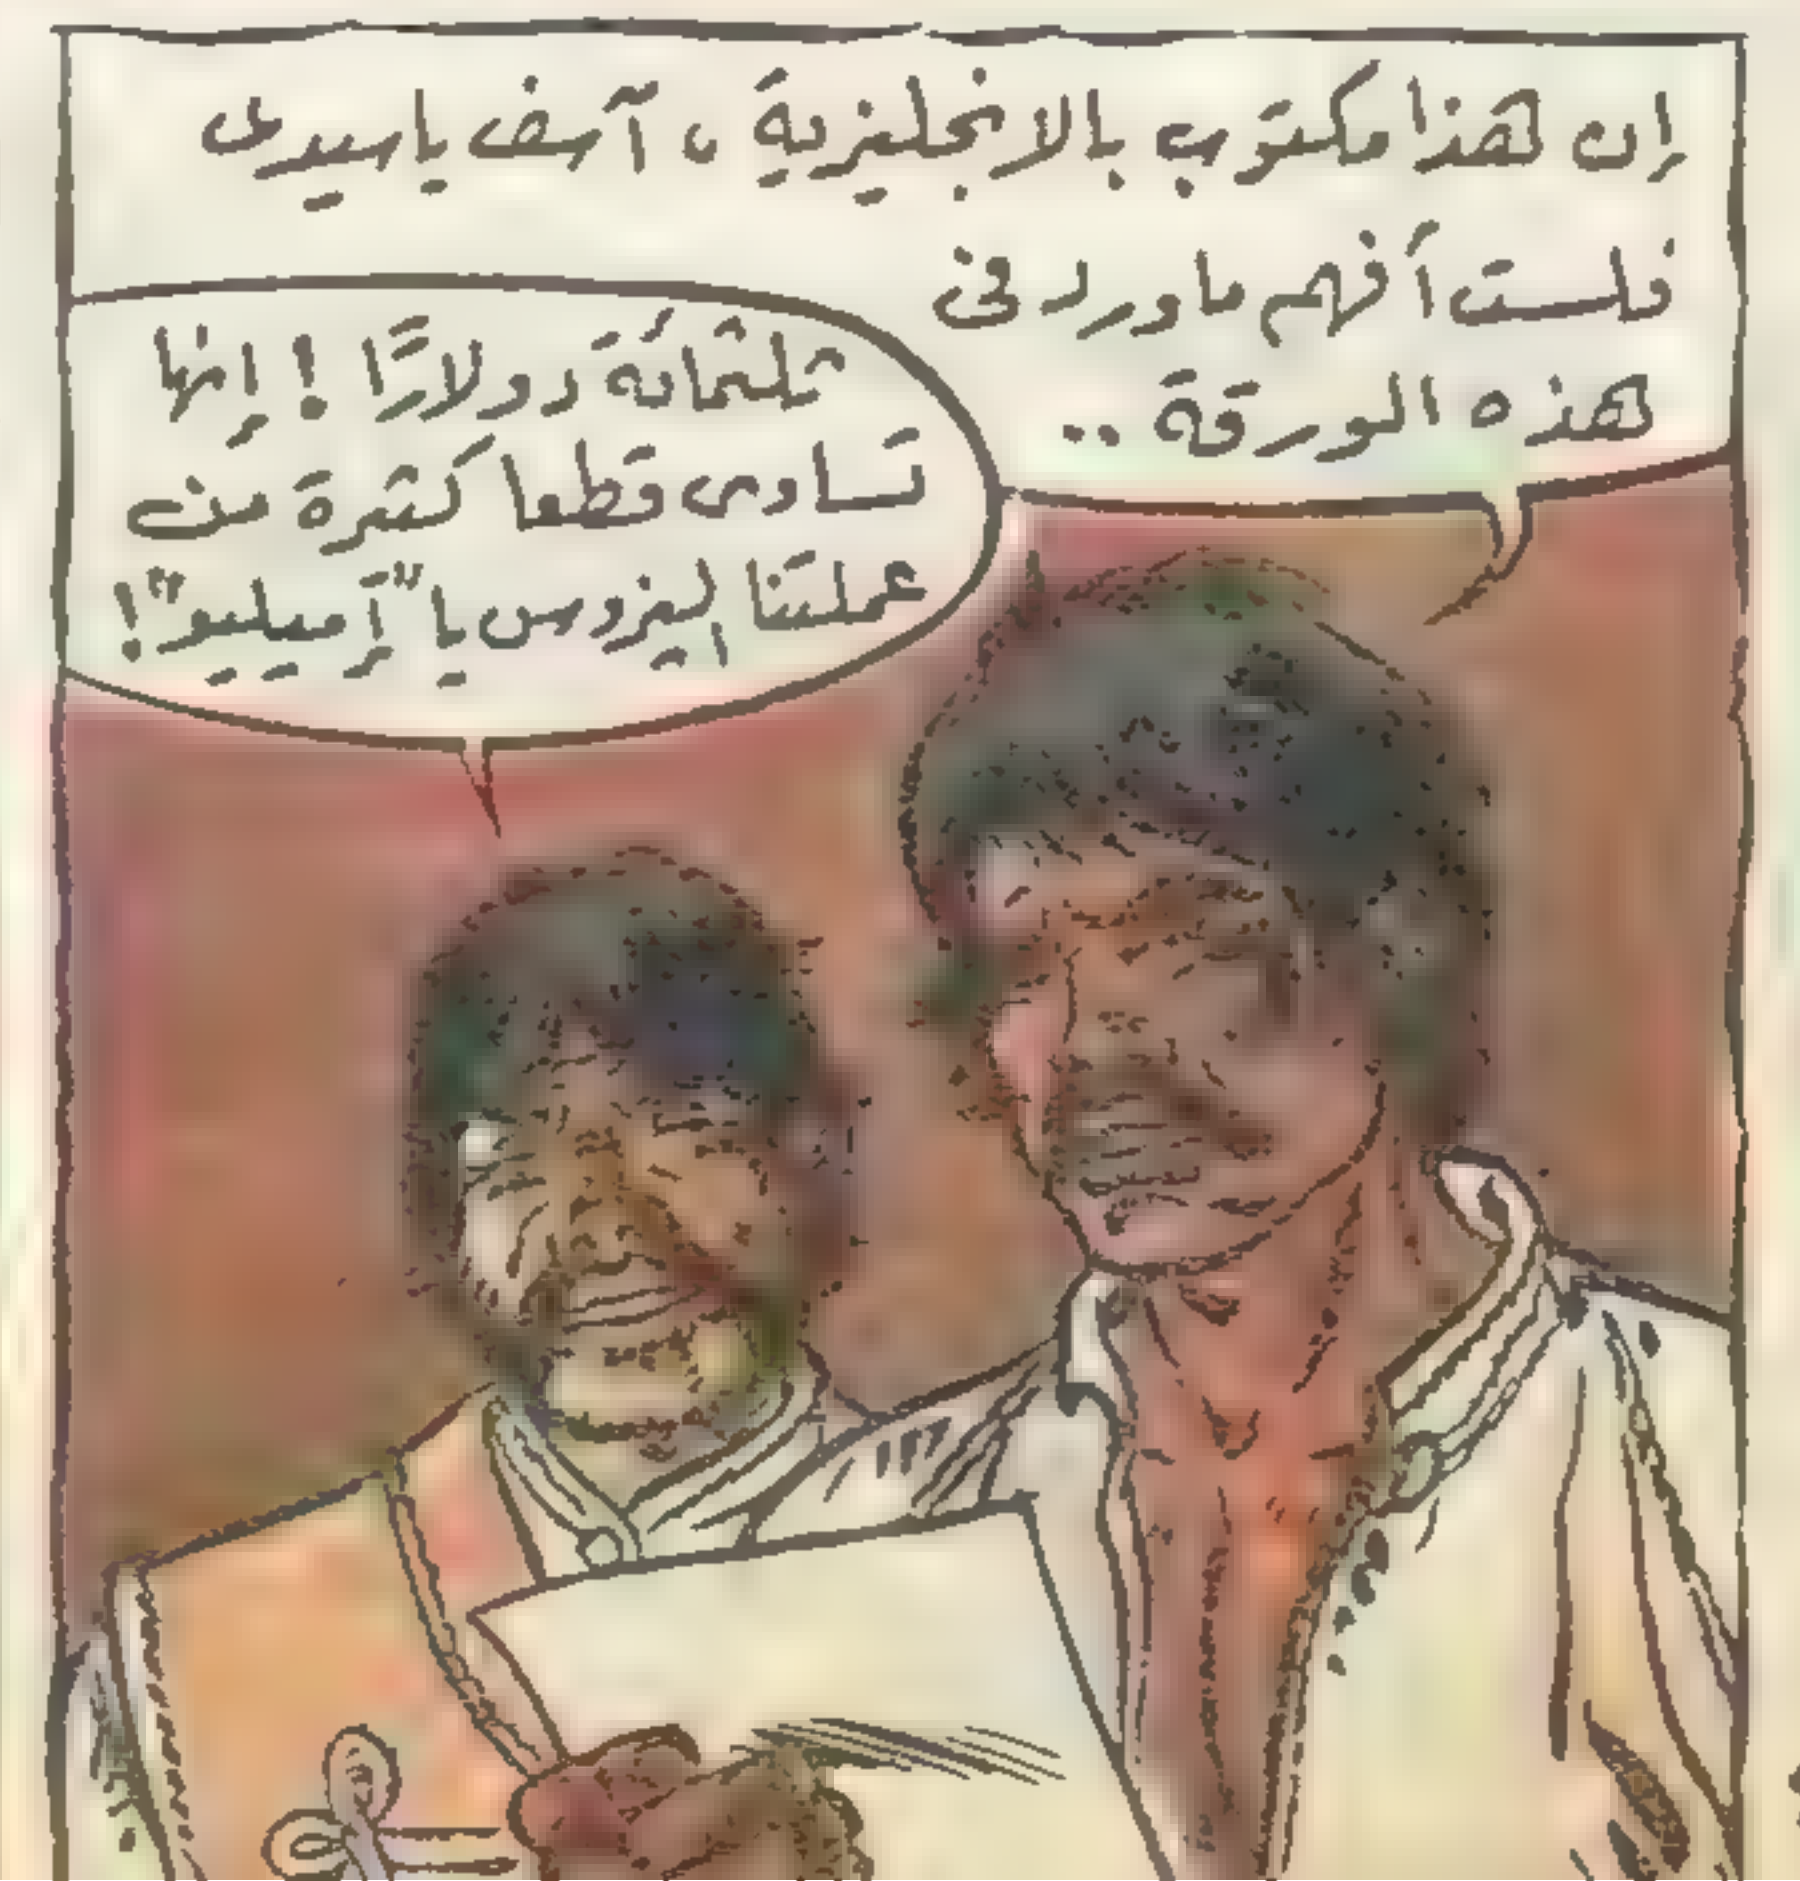 إن هذا مكتوب بالانجليزية ، آسف ياسيدى
فلست أفهم ماورد فى
هذه الورقة ..
ثلثمائة دولارًا ! إنها
تساوى قطعا كثيرة من
عملتنا البيزوس يا "إميليو" !